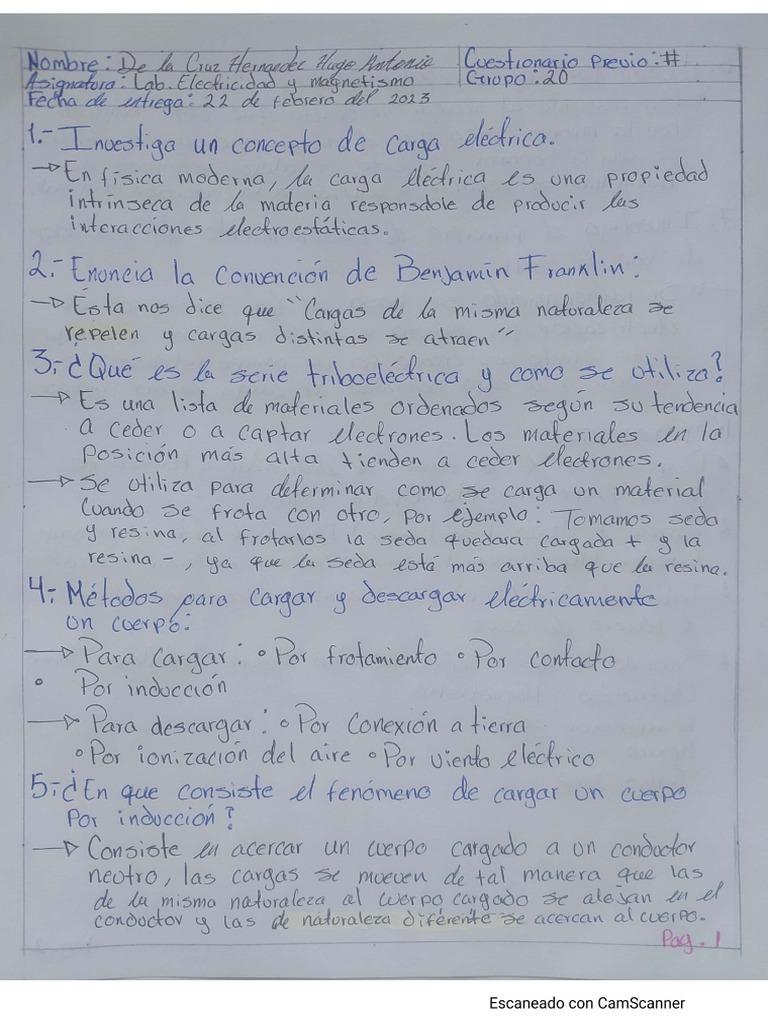 Nombre: De la Cruz Hernandez Hugo Antonio
Cuestionario Previo: #
Asignatura: Lab. Electricidad y magnetismo
Grupo: 20
Fecha de entrega: 22 de febrero del 2023
1.- Investiga un concepto de carga eléctrica.
→ En física moderna, la carga eléctrica es una propiedad
intrínseca de la materia responsable de producir las
interacciones electroestáticas.
2.- Enuncia la convención de Benjamin Franklin:
→ Esta nos dice que "Cargas de la misma naturaleza se
repelen y cargas distintas se atraen"
3.- ¿Qué es la serie triboeléctrica y como se utiliza?
→ Es una lista de materiales ordenados según su tendencia
a ceder o a captar electrones. Los materiales en la
posición más alta tienden a ceder electrones.
→ Se utiliza para determinar como se carga un material
cuando se frota con otro, por ejemplo: Tomamos seda
y resina, al frotarlos la seda quedara cargada + y la
resina -, ya que la seda está más arriba que la resina.
4.- Métodos para cargar y descargar eléctricamente
un cuerpo:
→ Para cargar: ° Por frotamiento ° Por contacto
° Por inducción
→ Para descargar: ° Por Conexión a tierra
° Por ionización del aire ° Por viento eléctrico
5.- ¿En que consiste el fenómeno de cargar un cuerpo
por inducción?
→ Consiste en acercar un cuerpo cargado a un conductor
neutro, las cargas se mueven de tal manera que las
de la misma naturaleza al cuerpo cargado se alejan en el
conductor y las de naturaleza diferente se acercan al cuerpo.
Pag. 1
Escaneado con CamScanner